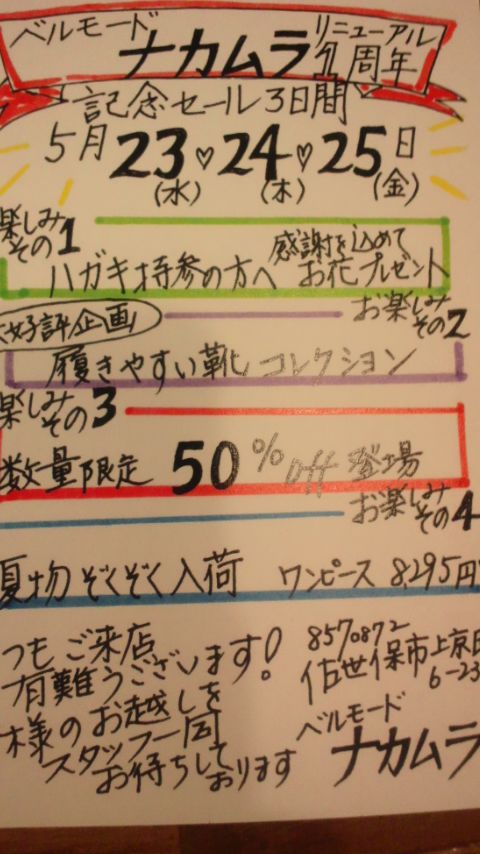 ベルモード
ナカムラ
リニューアル
1周年
記念セール3日間
5月23♡24♡25日
(水) (木) (金)
楽しみ
その1
感謝を込めて
ハガキ持参の方へ お花プレゼント
好評企画
お楽しみ
その2
履きやすい靴 コレクション
楽しみ
その3
数量限定 50%off 登場
お楽しみ
その4
夏物ぞくぞく入荷 ワンピース 8,295円
つもご来店
有難うございます!
様のお越しを
スタッフ一同
お待ちして
おります
8570872
佐世保市上京
6-23
ベルモード
ナカムラ